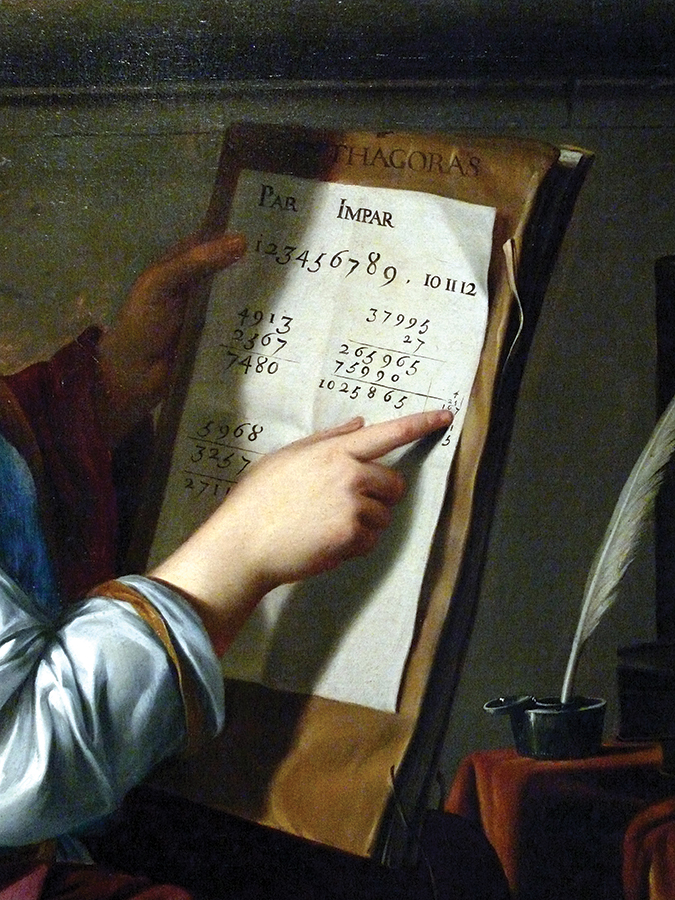 THAGORAS
PAR IMPAR
123456789. 10 11 12
4913
2567
7480
37995
27
265965
75990
1025865
5968
3257
2711
5